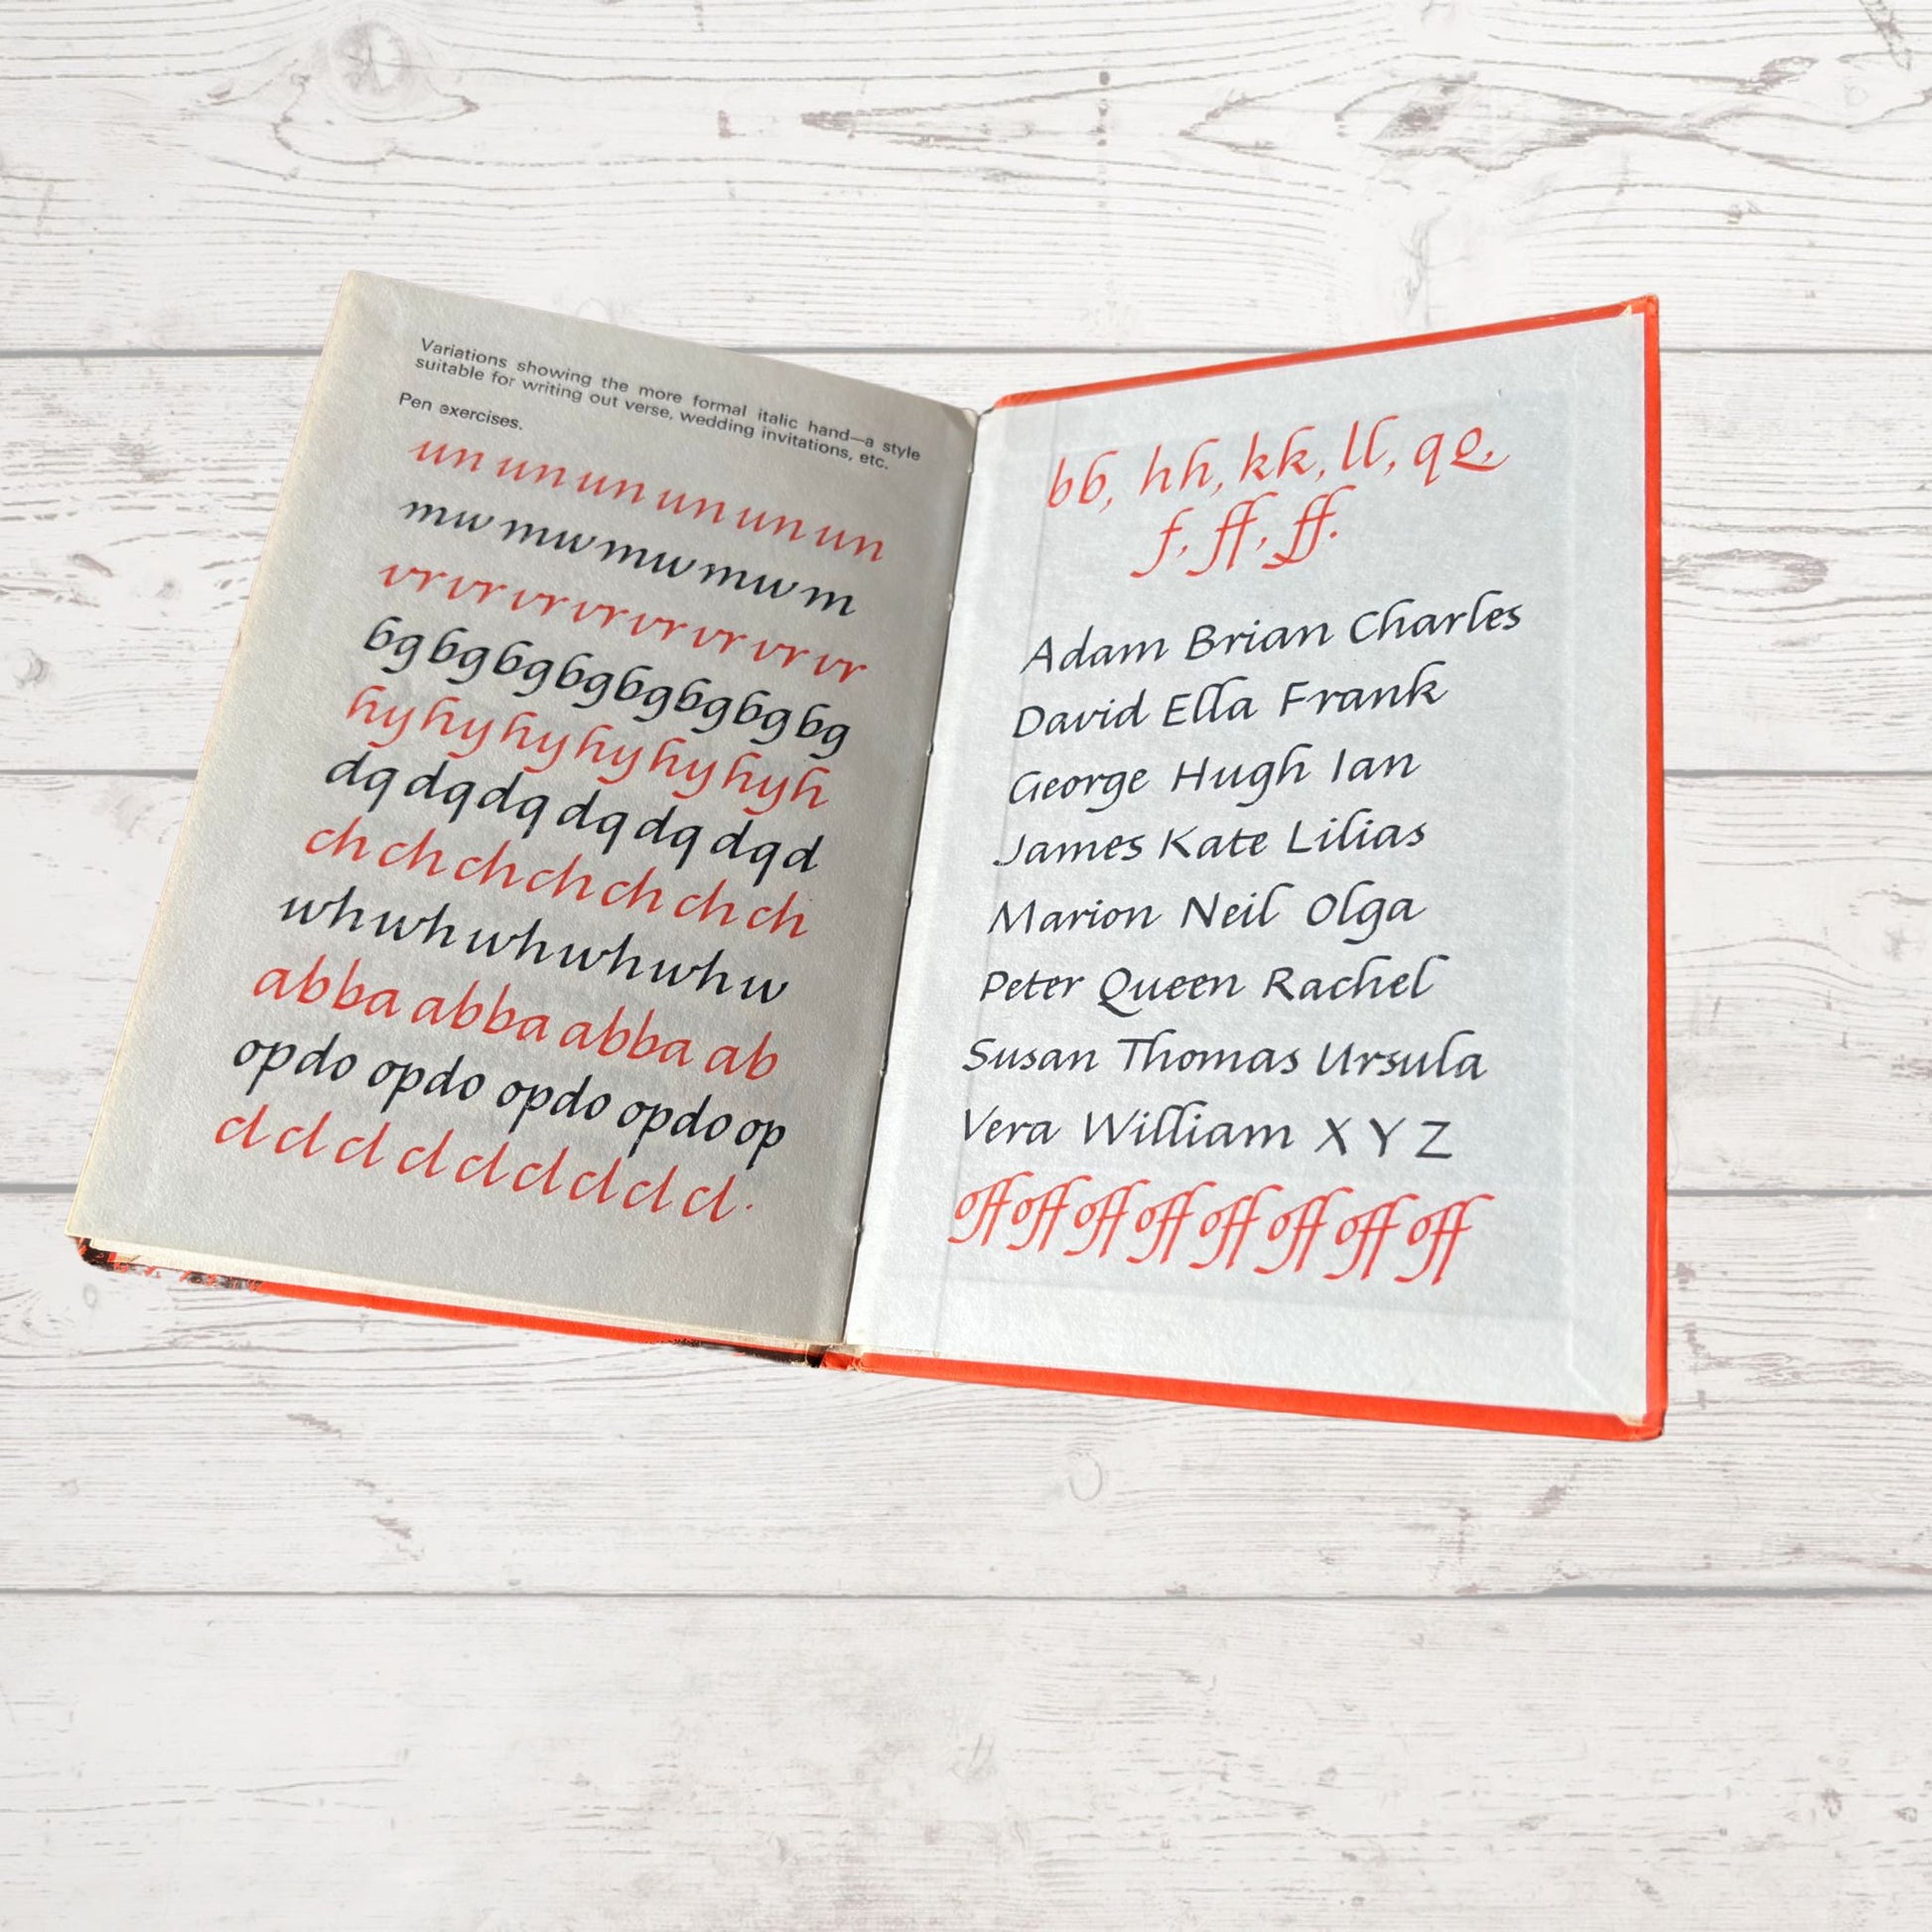 Variations showing the more formal italic hand—a style
suitable for writing out verse, wedding invitations, etc.
Pen exercises.
un un un un un un
mw mw mw mw m
vr vr vr vr vr vr vr vr
bg bg bg bg bg bg bg bg
hy hy hy hy hy hy h
dq dq dq dq dq dq d
ch ch ch ch ch ch ch
wh wh wh wh wh w
abba abba abba ab
opdo opdo opdo opdo op
cl cl cl cl cl cl cl cl cl.
bb, hh, kk, ll, qe,
f, ff, ff.
Adam Brian Charles
David Ella Frank
George Hugh Ian
James Kate Lilias
Marion Neil Olga
Peter Queen Rachel
Susan Thomas Ursula
Vera William X Y Z
off off off off off off off off